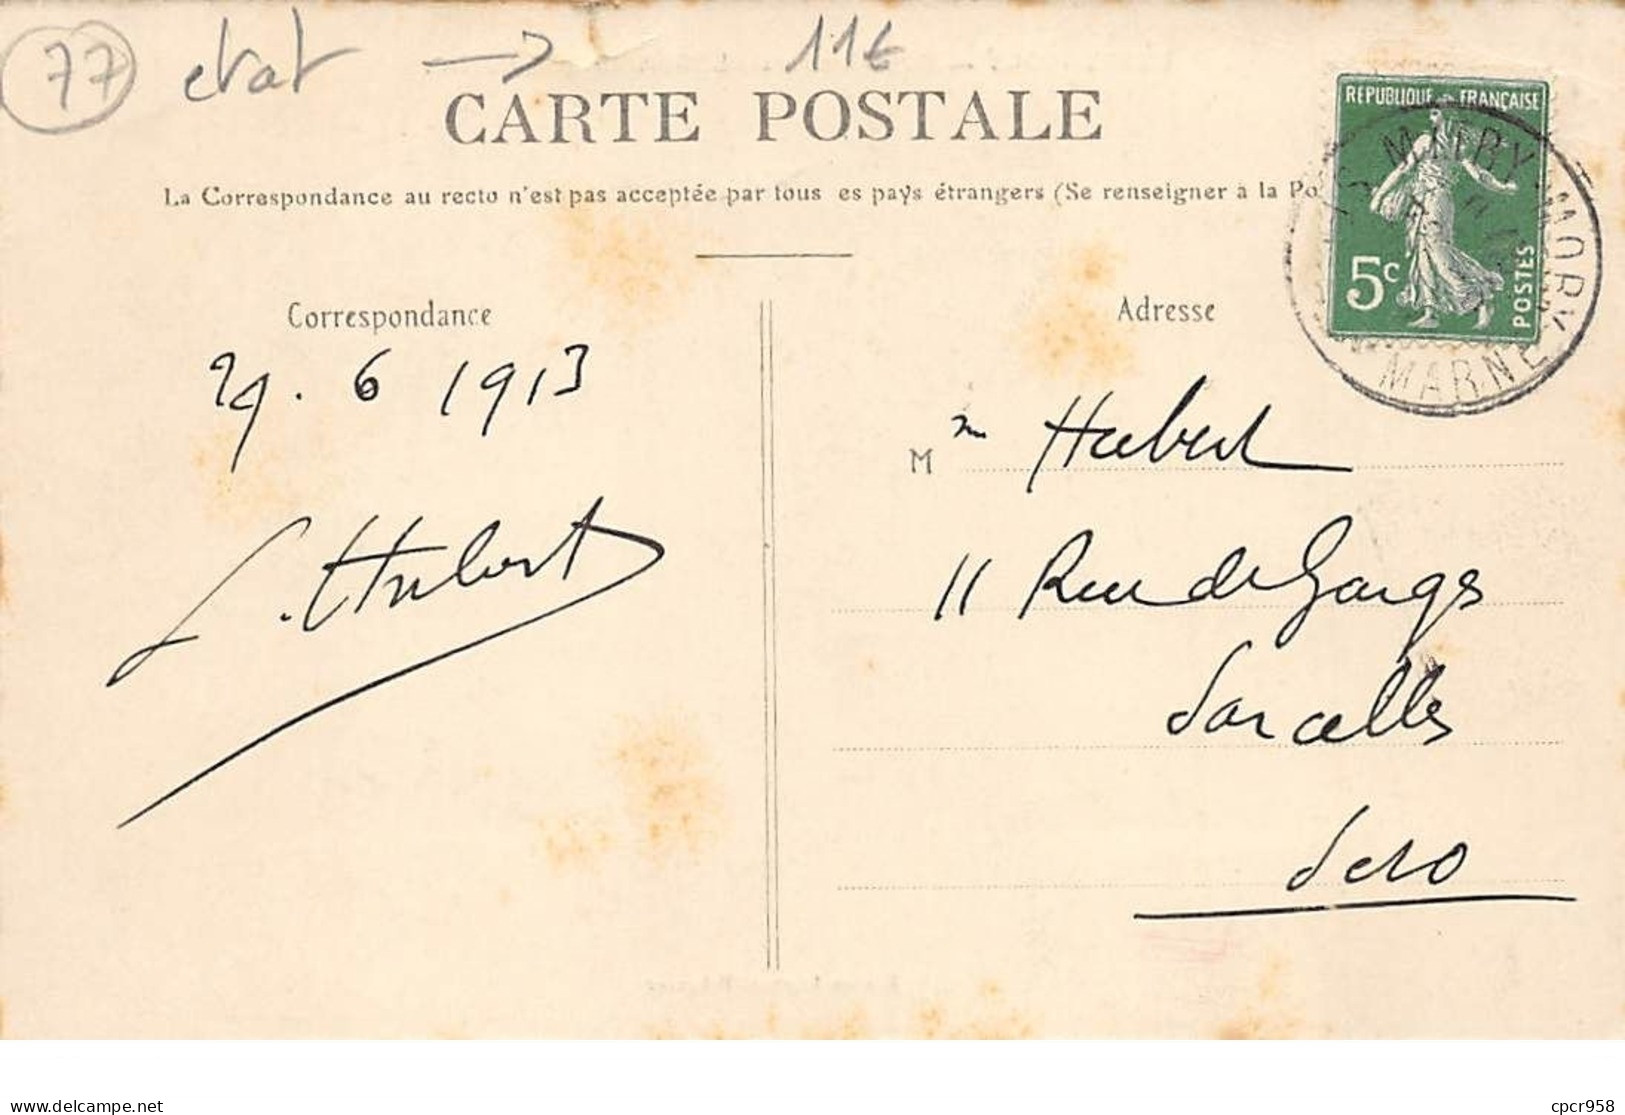 77 etat → 11€
CARTE POSTALE
REPUBLIQUE FRANÇAISE
5c
POSTES
MITRY-MORY
MARNE
La Correspondance au recto n'est pas acceptée par tous es pays étrangers (Se renseigner à la Po
Correspondance
Adresse
29. 6 1913
L. Hubert
Mme Hubert
11 Rue de Garges
Sarcelles
S et O
cpcr958